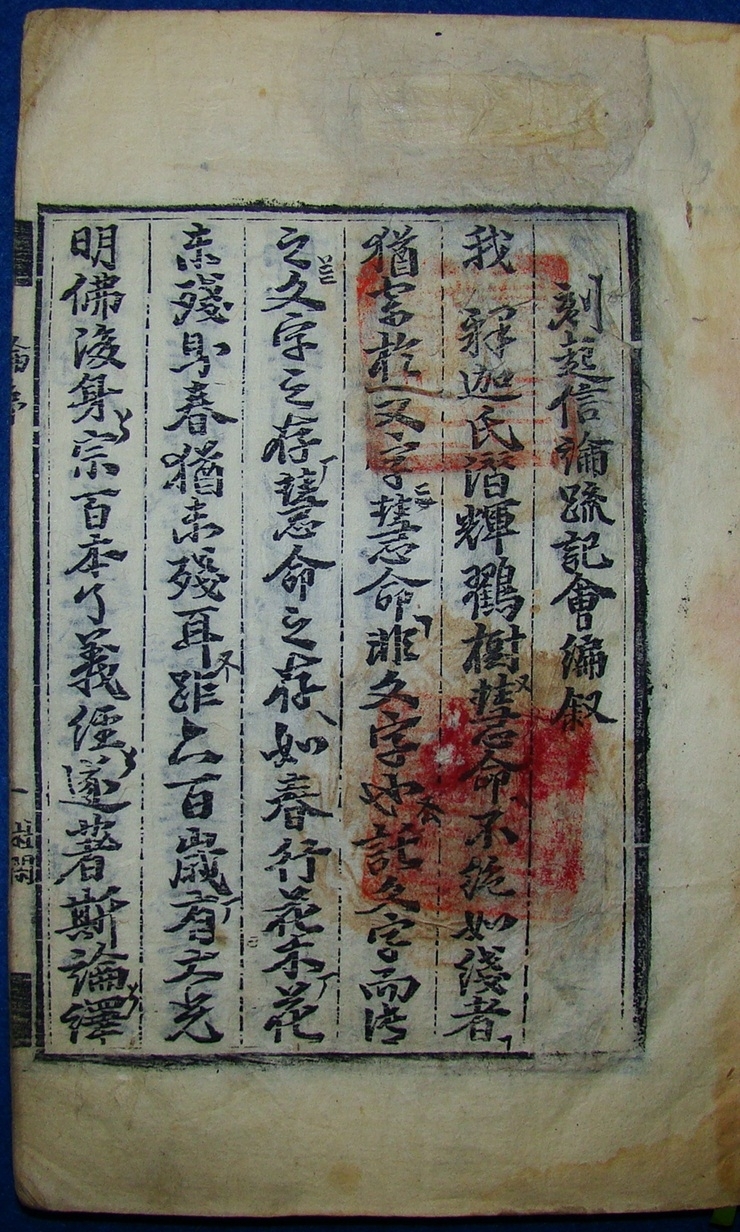 刻起信論疏記會編叙
我 釋迦氏潛輝鶴樹慧命不絶如綫者
猶寄於文字慧命非文字也託文字而傳
之文字之存慧命之存如春行花木花
未殘即春猶未殘耳距六百歲有大光
明佛後身宗百本了義經遂著斯論繹